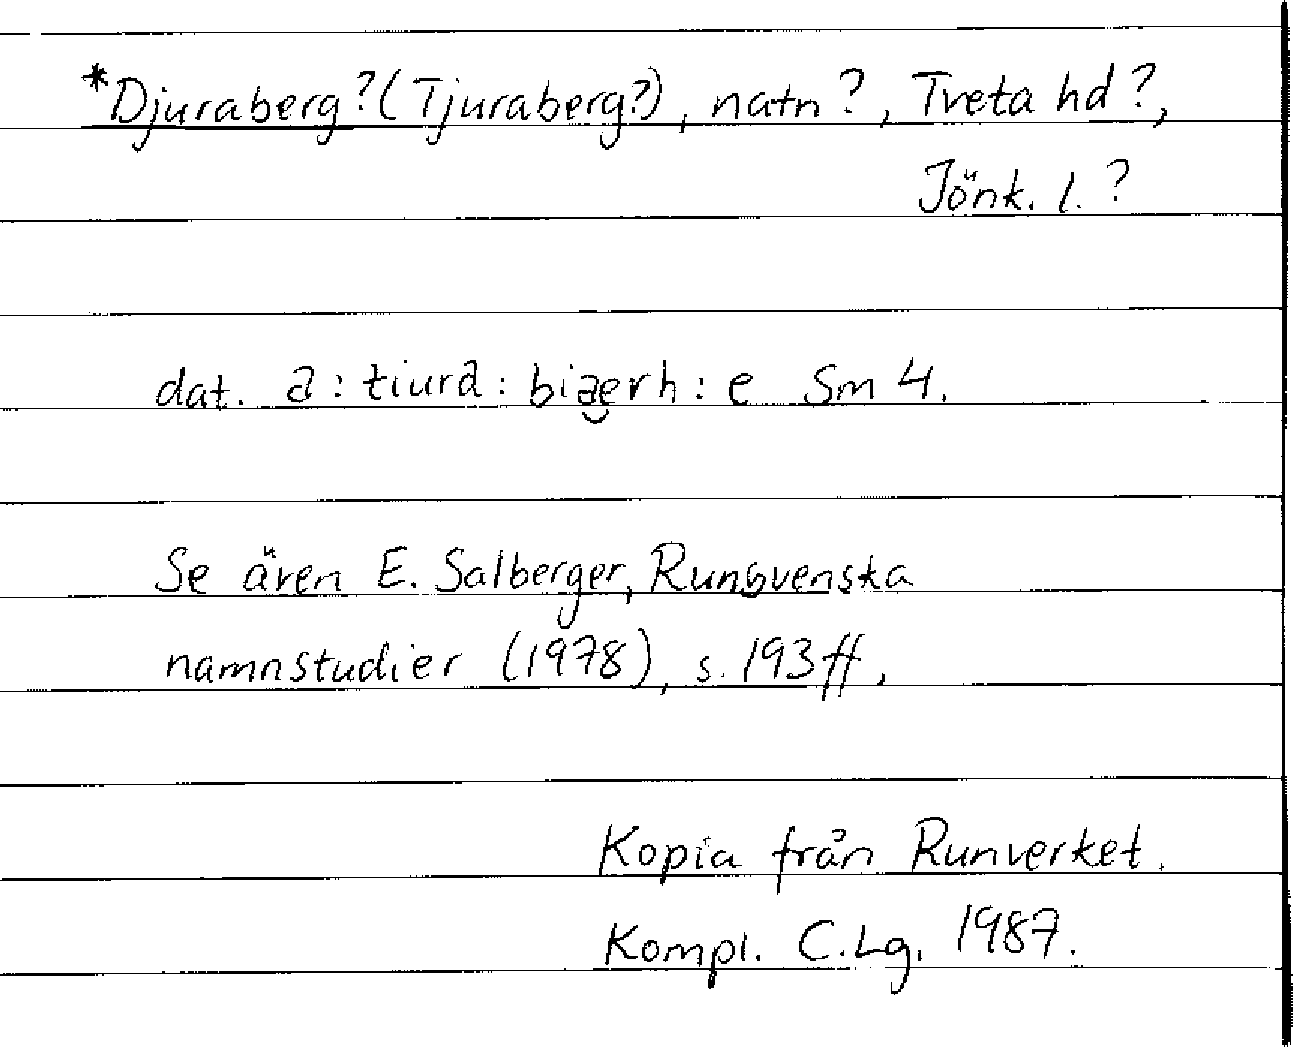 *Djuraberg? (Tjuraberg?), natn?, Tveta hd?,
Jönk. l.?
dat. a : tiura : biaerh : e Sm 4.
Se även E. Salberger, Runsvenska
namnstudier (1978), s. 193 ff.
Kopia från Runverket.
Kompl. C.Lg. 1987.